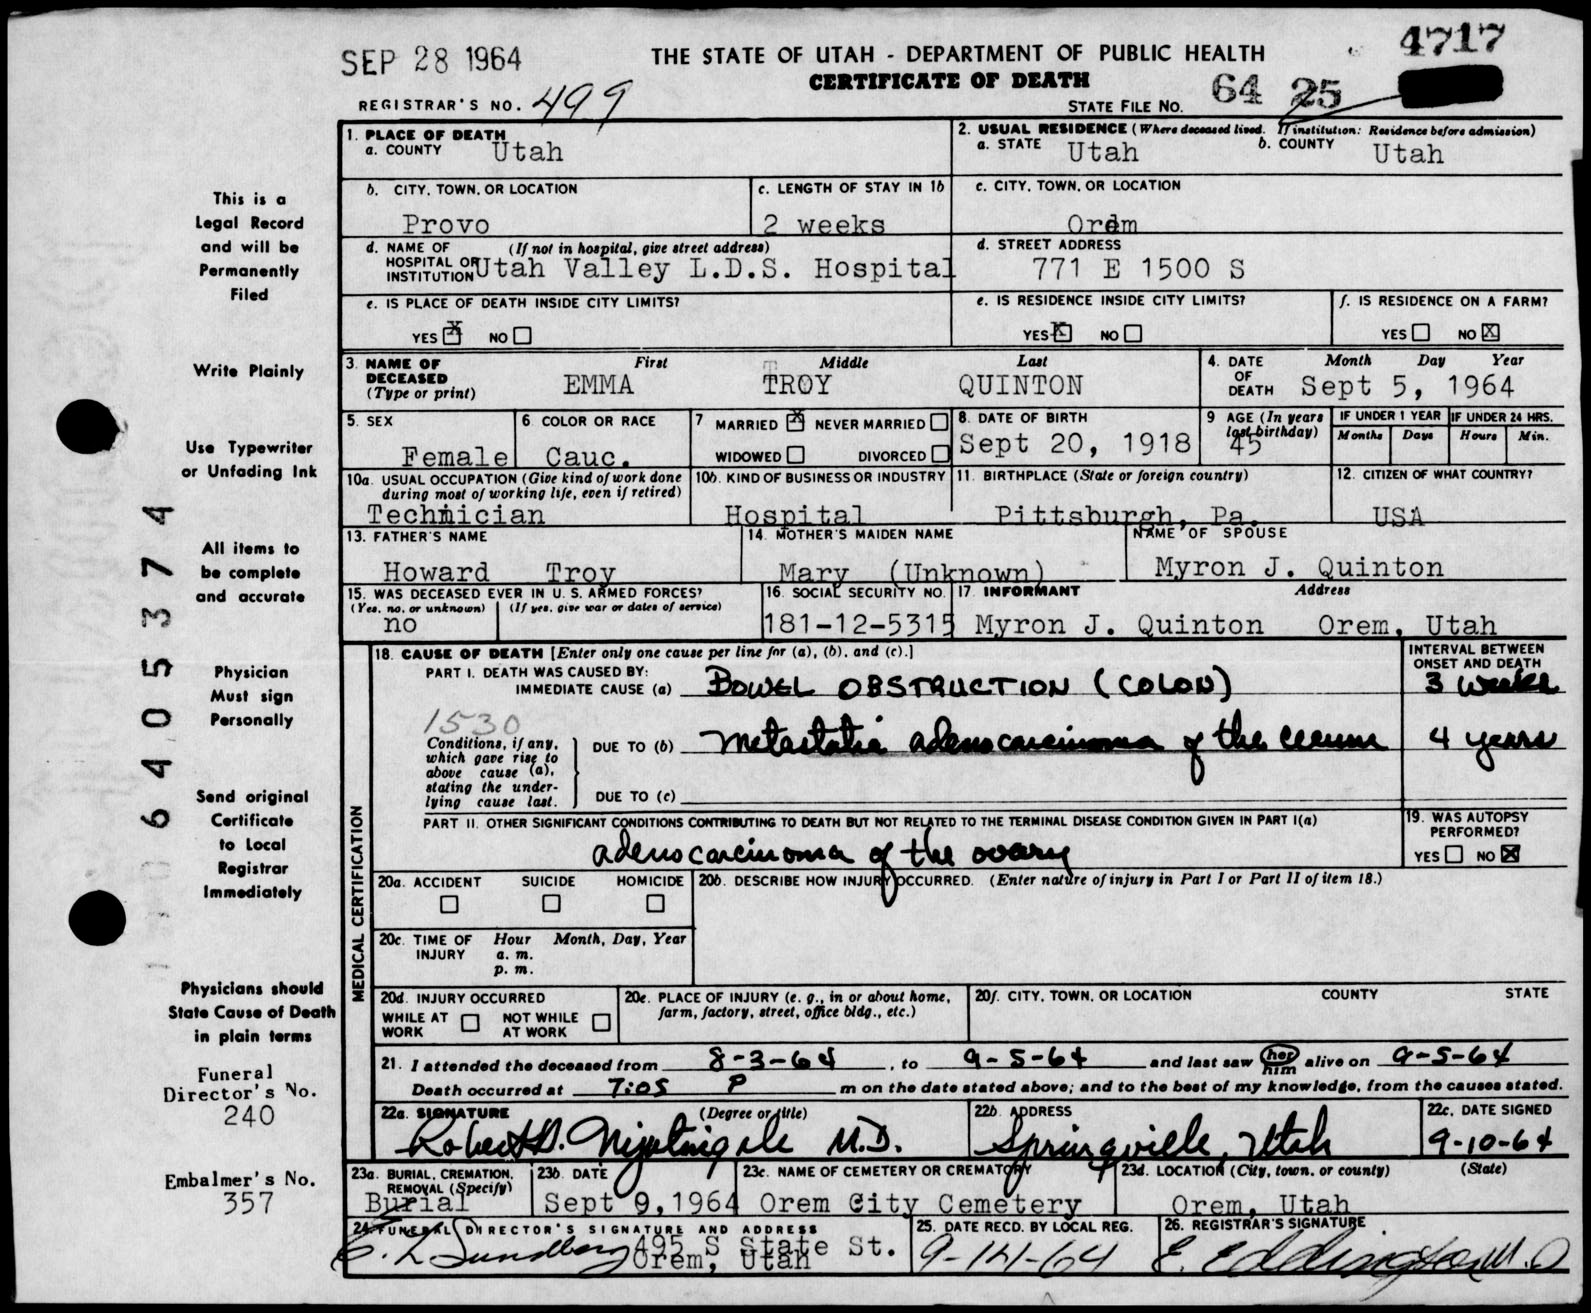 SEP 28 1964
THE STATE OF UTAH - DEPARTMENT OF PUBLIC HEALTH
4717
CERTIFICATE OF DEATH
REGISTRAR'S NO. 499
STATE FILE NO. 64 25
1. PLACE OF DEATH
a. COUNTY Utah
2. USUAL RESIDENCE (Where deceased lived. If institution: Residence before admission)
a. STATE Utah b. COUNTY Utah
b. CITY, TOWN, OR LOCATION
Provo
c. LENGTH OF STAY IN 1b
2 weeks
c. CITY, TOWN, OR LOCATION
Orem
d. NAME OF (If not in hospital, give street address)
HOSPITAL OR
INSTITUTION Utah Valley L.D.S. Hospital
d. STREET ADDRESS
771 E 1500 S
e. IS PLACE OF DEATH INSIDE CITY LIMITS?
YES X NO
e. IS RESIDENCE INSIDE CITY LIMITS?
YES X NO
f. IS RESIDENCE ON A FARM?
YES NO X
3. NAME OF DECEASED (Type or print)
First Middle Last
EMMA TROY QUINTON
4. DATE OF DEATH
Month Day Year
Sept 5, 1964
5. SEX
Female
6 COLOR OR RACE
Cauc.
7 MARRIED X NEVER MARRIED
WIDOWED DIVORCED
8. DATE OF BIRTH
Sept 20, 1918
9 AGE (In years last birthday)
45
IF UNDER 1 YEAR
Months Days
IF UNDER 24 HRS.
Hours Min.
10a. USUAL OCCUPATION (Give kind of work done
during most of working life, even if retired)
Technician
10b. KIND OF BUSINESS OR INDUSTRY
Hospital
11. BIRTHPLACE (State or foreign country)
Pittsburgh, Pa.
12. CITIZEN OF WHAT COUNTRY?
USA
13. FATHER'S NAME
Howard Troy
14. MOTHER'S MAIDEN NAME
Mary (Unknown)
NAME OF SPOUSE
Myron J. Quinton
15. WAS DECEASED EVER IN U. S. ARMED FORCES?
(Yes, no, or unknown) (If yes, give war or dates of service)
no
16. SOCIAL SECURITY NO.
181-12-5315
17. INFORMANT Address
Myron J. Quinton Orem, Utah
MEDICAL CERTIFICATION
18. CAUSE OF DEATH [Enter only one cause per line for (a), (b), and (c).]
INTERVAL BETWEEN
ONSET AND DEATH
PART I. DEATH WAS CAUSED BY:
IMMEDIATE CAUSE (a) BOWEL OBSTRUCTION (COLON) 3 weeks
1530
Conditions, if any,
which gave rise to
above cause (a),
stating the under-
lying cause last.
DUE TO (b) metastatic adenocarcinoma of the cecum 4 years
DUE TO (c)
PART II. OTHER SIGNIFICANT CONDITIONS CONTRIBUTING TO DEATH BUT NOT RELATED TO THE TERMINAL DISEASE CONDITION GIVEN IN PART I(a)
adenocarcinoma of the ovary
19. WAS AUTOPSY
PERFORMED?
YES NO X
20a. ACCIDENT SUICIDE HOMICIDE
20b. DESCRIBE HOW INJURY OCCURRED. (Enter nature of injury in Part I or Part II of item 18.)
20c. TIME OF INJURY
Hour Month, Day, Year
a. m.
p. m.
20d. INJURY OCCURRED
WHILE AT WORK NOT WHILE AT WORK
20e. PLACE OF INJURY (e. g., in or about home,
farm, factory, street, office bldg., etc.)
20f. CITY, TOWN, OR LOCATION COUNTY STATE
21. I attended the deceased from 8-3-64, to 9-5-64 and last saw her him alive on 9-5-64
Death occurred at 7:05 P m on the date stated above; and to the best of my knowledge, from the causes stated.
22a. SIGNATURE (Degree or title)
Robert D. Nightingale M.D.
22b. ADDRESS
Springville, Utah
22c. DATE SIGNED
9-10-64
23a. BURIAL, CREMATION,
REMOVAL (Specify)
Burial
23b. DATE
Sept 9, 1964
23c. NAME OF CEMETERY OR CREMATORY
Orem City Cemetery
23d. LOCATION (City, town, or county) (State)
Orem, Utah
24. FUNERAL DIRECTOR'S SIGNATURE AND ADDRESS
Sundberg 495 S State St.
Orem, Utah
25. DATE RECD. BY LOCAL REG.
9-14-64
26. REGISTRAR'S SIGNATURE
E. Eddington M.D
This is a
Legal Record
and will be
Permanently
Filed
Write Plainly
Use Typewriter
or Unfading Ink
All items to
be complete
and accurate
Physician
Must sign
Personally
Send original
Certificate
to Local
Registrar
Immediately
Physicians should
State Cause of Death
in plain terms
Funeral
Director's No.
240
Embalmer's No.
357
64053 74